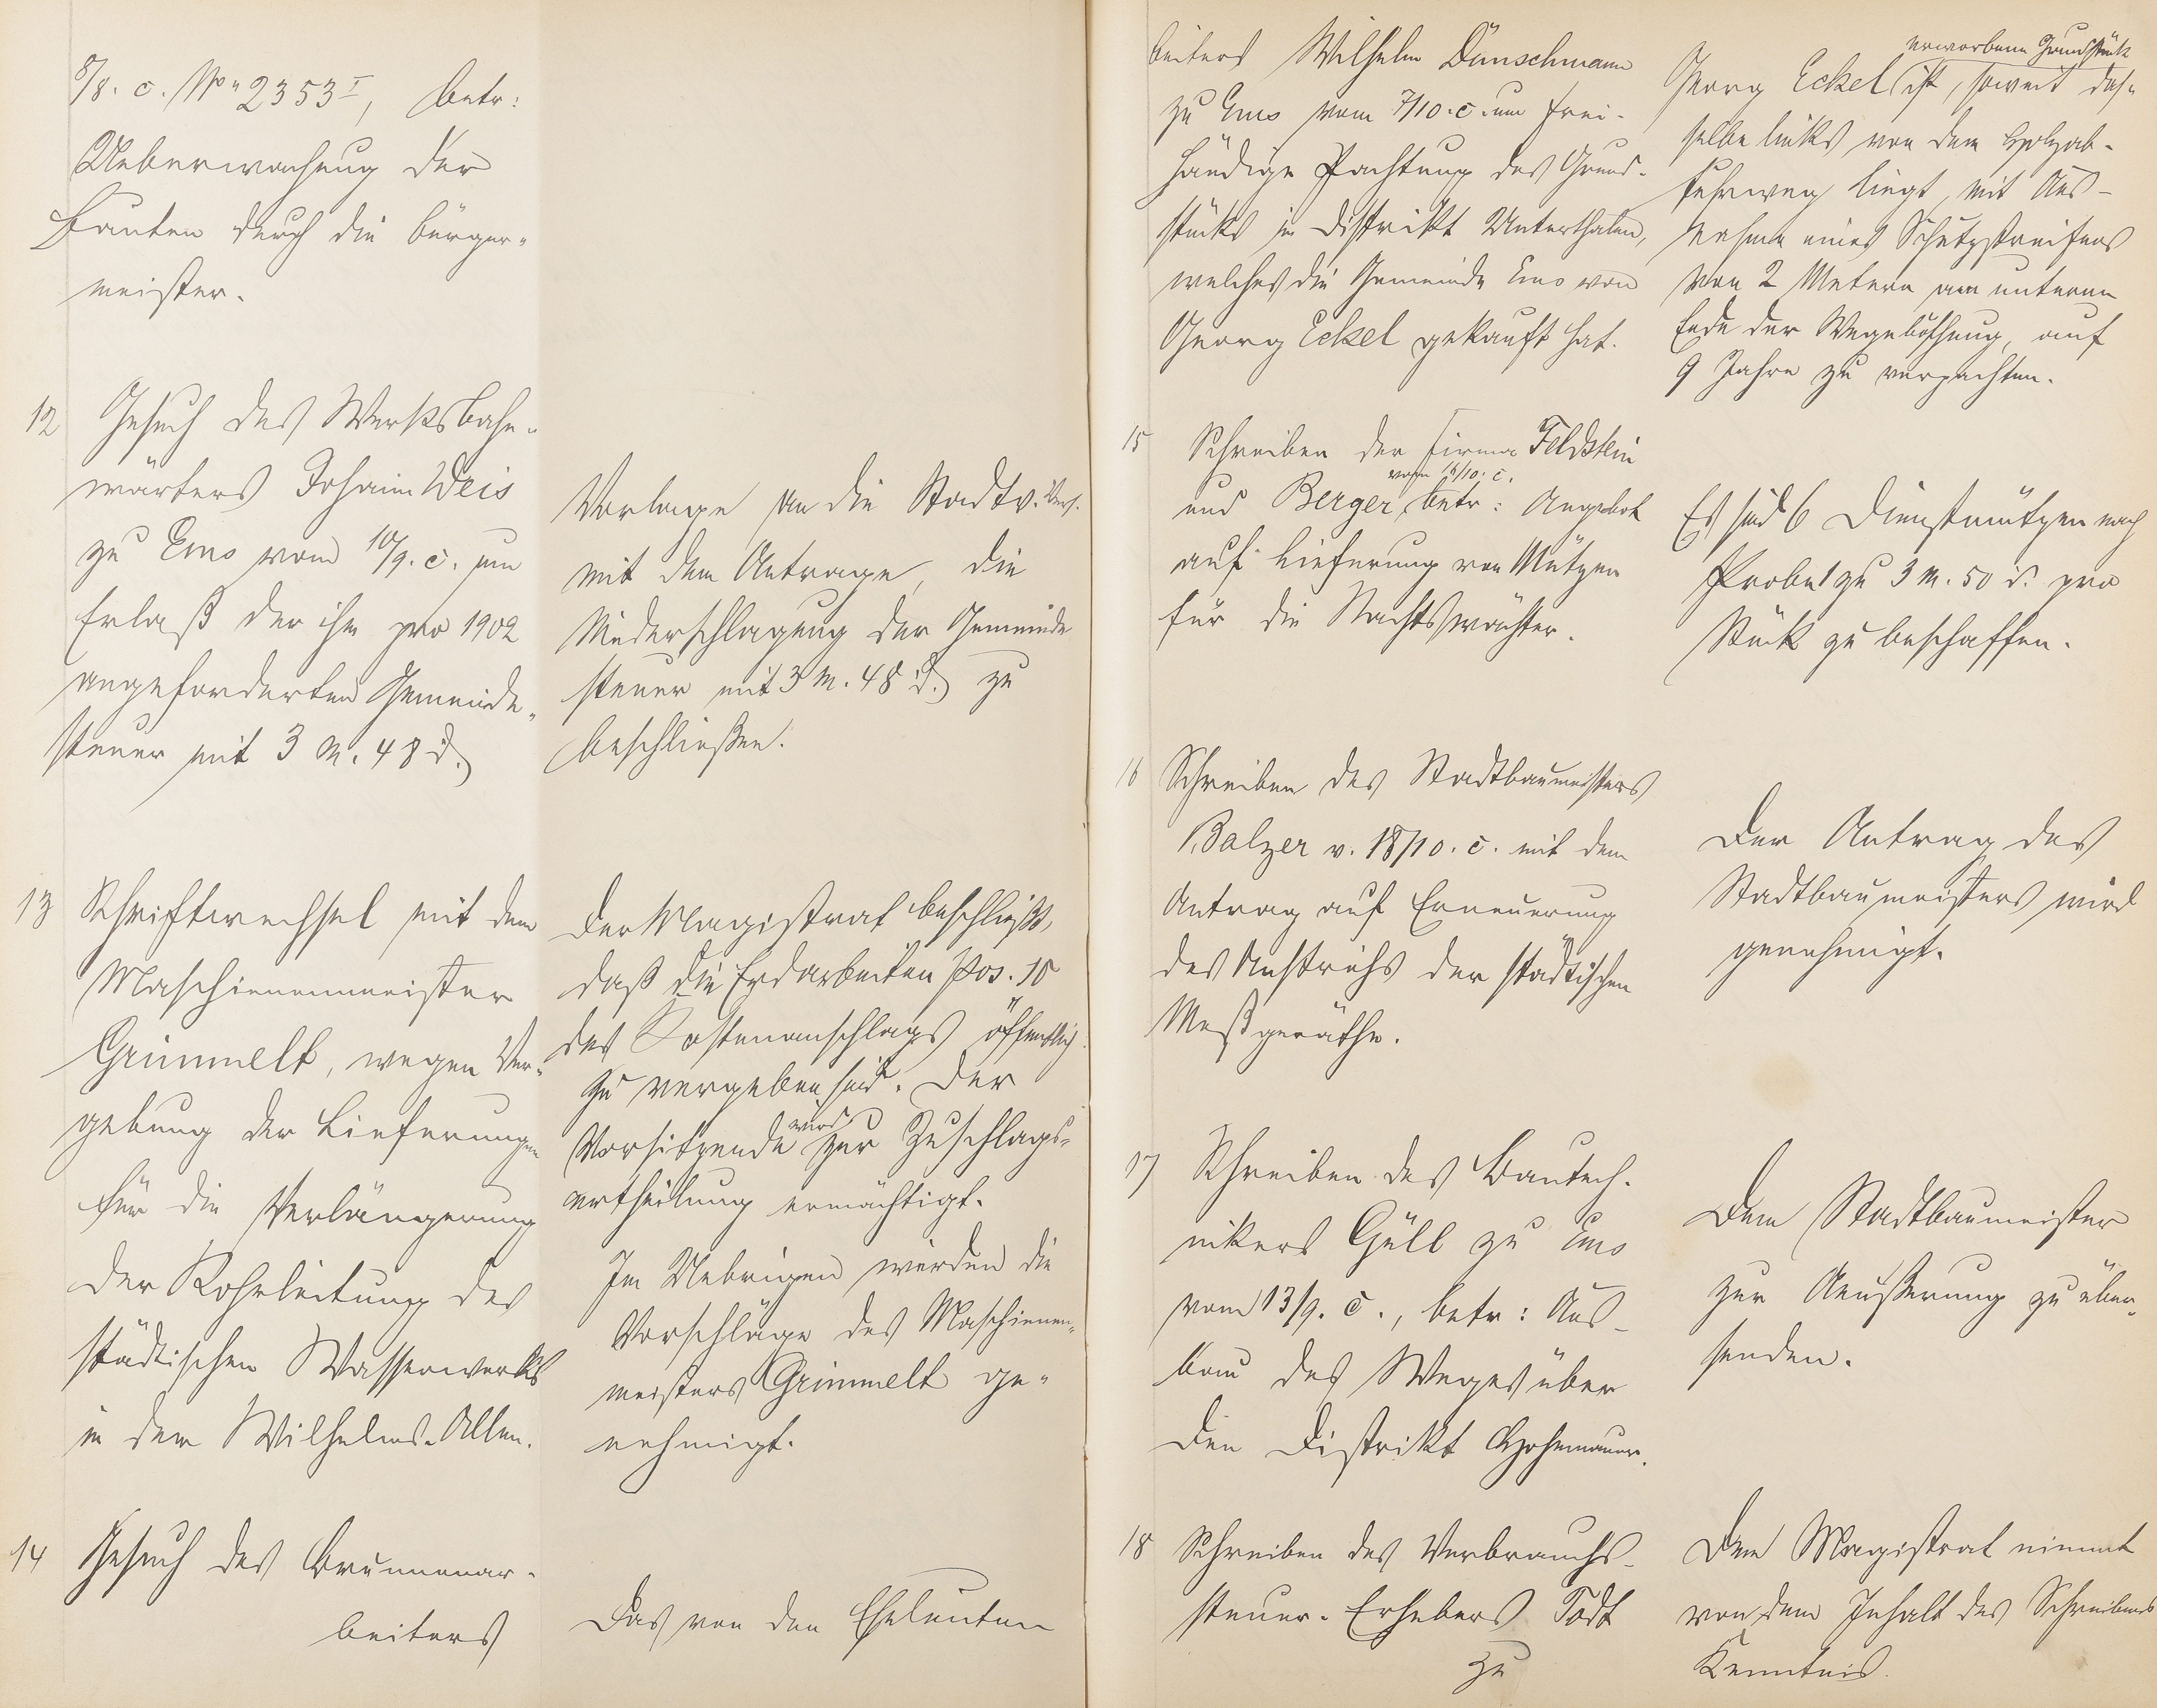 8/8. c. No 2353 I, betr:
Ueberwachung der
Bauten durch die Bürger-
meister.
12 Gesuch des Werksbahn-
wärters Johann Weis
zu Ems vom 10/9. c. um
Erlaß der ihm pro 1902
angeforderten Gemeinde-
steuer mit 3 M. 48 d.
Vorlage an die Stadtv. Vers.
mit dem Antrage, die
Niederschlagung der Gemeinde
steuer mit 3 M. 48 d. zu
beschließen.
13 Schriftwechsel mit dem
Maschienenmeister
Grimmelt, wegen Ver-
gebung der Lieferungen
für die Verlängerung
der Rohrleitung des
städtischen Wasserwerks
in der Wilhelms-Allee.
Der Magistrat beschließt,
daß die Erdarbeiten Pos. 10
des Kostenanschlags öffentlich
zu vergeben sind. Der
Vorsitzende wird zur Zuschlags-
ertheilung ermächtigt.
Im Uebrigen werden die
Vorschläge des Maschienen-
meisters Grimmelt ge-
nehmigt.
14 Gesuch des Brunnenar-
beiters
Das von den Eheleuten
beiters Wilhelm Dünschmann
zu Ems vom 7/10. c. um frei-
händige Pachtung des Grund-
stücks im Distrikt Unterthalen,
welches die Gemeinde Ems von
Georg Eckel gekauft hat.
erworbene Grundstück
Georg Eckel ist, soweit das-
selbe links von dem Holzab-
fuhrweg liegt, mit Aus-
nahme eines Schutzstreifens
von 2 Metern am unteren
Ende der Wegeböschung, auf
9 Jahre zu verpachten.
15 Schreiben der Firma Feldstein
vom 16/10. c.
und Berger, betr: Angebot
auf Lieferung von Mützen
für die Nachtswächter.
Es sind 6 Dienstmützen nach
Probe 1 zu 3 M. 50 d. pro
Stück zu beschaffen.
16 Schreiben des Stadtbaumeisters
Balzer v. 18/10. c. mit dem
Antrag auf Erneuerung
des Anstrichs der städtischen
Meßgeräthe.
Der Antrag des
Stadtbaumeisters wird
genehmigt.
17 Schreiben des Bautech-
nikers Güll zu Ems
vom 13/9. c., betr: Aus-
bau des Weges über
den Distrikt Hohemauer.
Dem Stadtbaumeister
zur Aeußerung zu über-
senden.
18 Schreiben des Verbrauchs-
steuer-Erhebers Todt
zu
Der Magistrat nimmt
von dem Inhalt des Schreibens
Kenntnis.